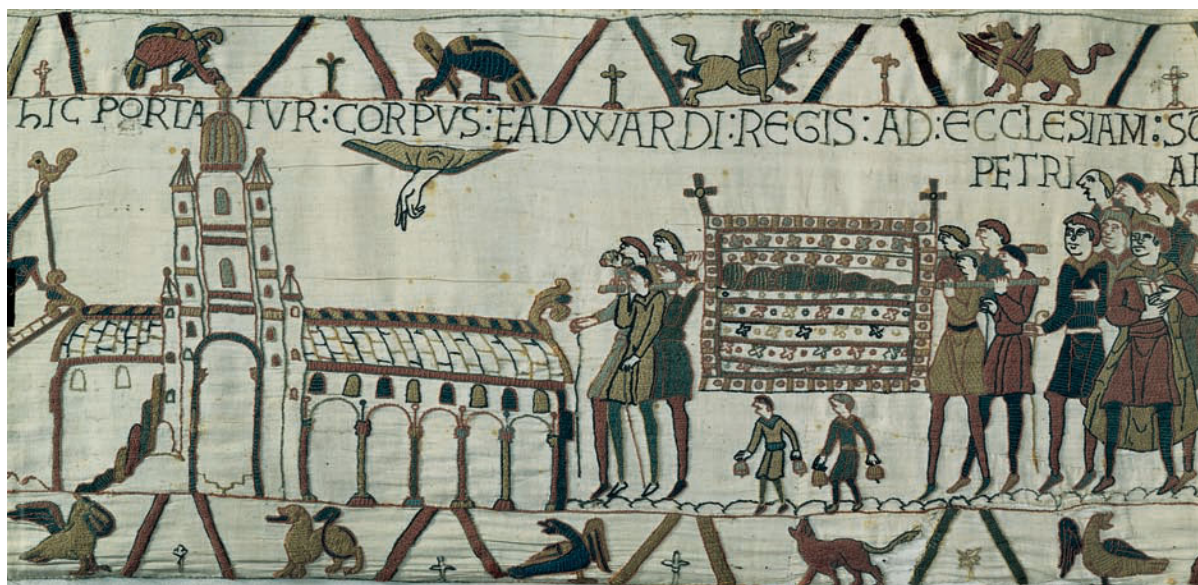 hIC PORTATVR:CORPVS:EADWARDI:REGIS:AD:ECCLESIAM:SC
PETRI AP